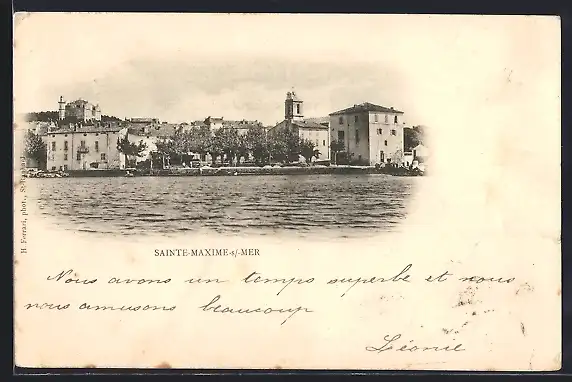 H. Ferrari, phot.,
SAINTE-MAXIME-s/-MER
Nous avons un temps superbe et nous
nous amusons beaucoup
Léonie